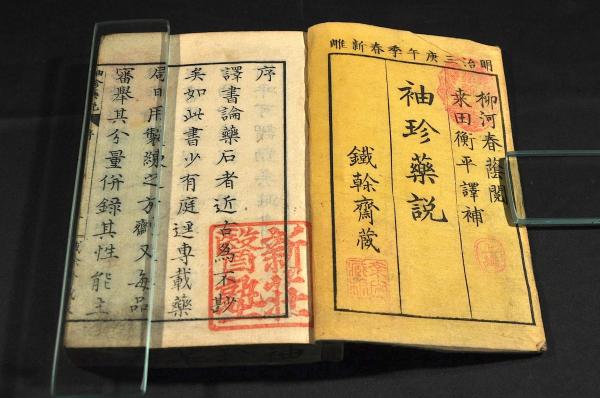 明治三庚午季春新雕
柳河春蔭閲
桒田衡平譯補
袖珍藥説
鐵榦齋藏
序
譯書論藥石者近古為不尠
矣如此書少有庭逕專載藥
局日用製煉之方齋又每品
審舉其分量併錄其性能主